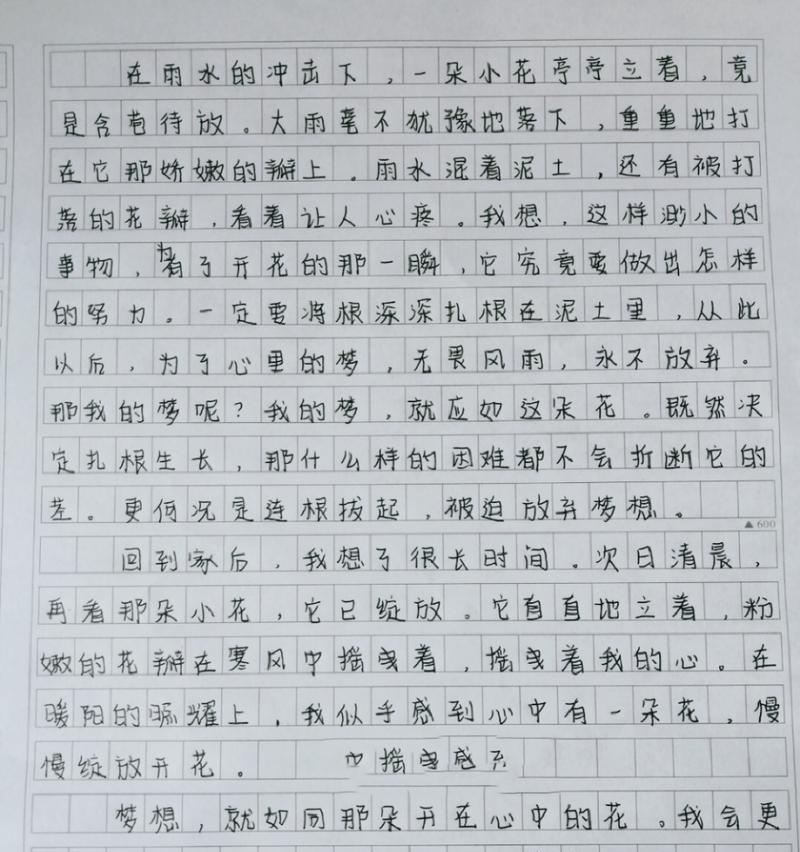 在雨水的冲击下，一朵小花亭亭立着，竟
是含苞待放。大雨毫不犹豫地落下，重重地打
在它那娇嫩的瓣上。雨水混着泥土，还有被打
落的花瓣，看着让人心疼。我想，这样渺小的
事物，为了开花的那一瞬，它究竟要做出怎样
的努力。一定要将根深深扎根在泥土里，从此
以后，为了心里的梦，无畏风雨，永不放弃。
那我的梦呢？我的梦，就应如这朵花。既然决
定扎根生长，那什么样的困难都不会折断它的
茎。更何况是连根拔起，被迫放弃梦想。
▲600
回到家后，我想了很长时间。次日清晨，
再看那朵小花，它已绽放。它直直地立着，粉
嫩的花瓣在寒风中摇曳着，摇曳着我的心。在
暖阳的照耀上，我似乎感到心中有一朵花，慢
慢绽放开花。 中摇曳感
梦想，就如同那朵开在心中的花。我会更